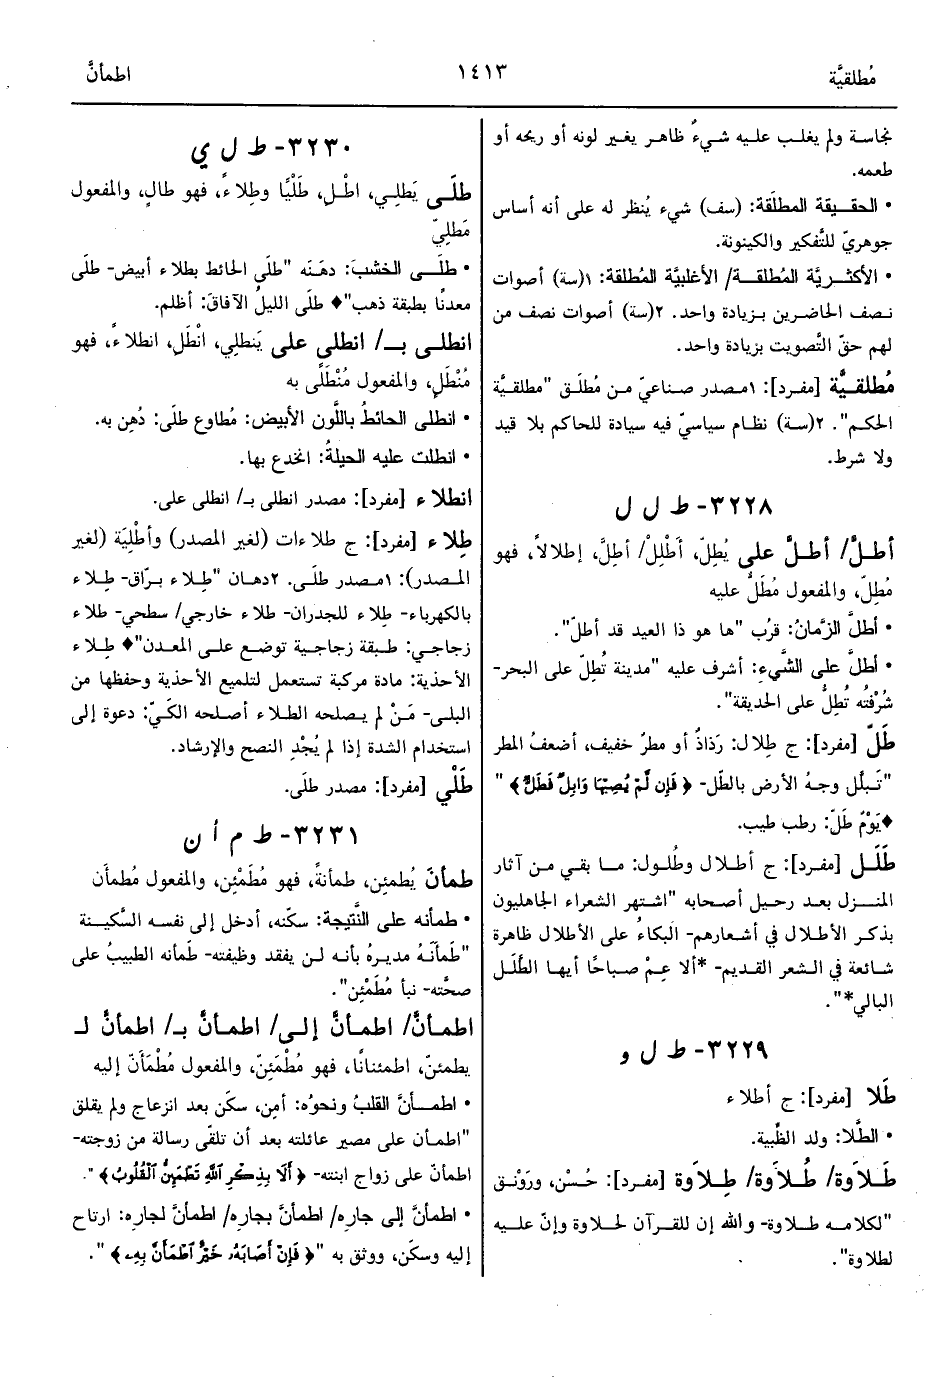 مُطلقيَّة
١٤١٣
اطمأنَّ
نجاسة ولم يغلب عليه شيءٌ ظاهر يغير لونه أو ريحه أو
طعمه.
• الحقـيقة المطلَقة: (سف) شيء يُنظر له على أنه أساس
جوهريّ للتَّفكير والكينونة.
• الأكثـريَّة المُطلقـة/ الأغلبيَّة المُطلقة: ١(سة) أصوات
نـصف الحاضرين بـزيادة واحد. ٢(سة) أصوات نصف من
لهم حقّ التَّصويت بزيادة واحد.
مُطلقيَّة [مفـرد]: ١مـصدر صـناعيّ مـن مُطلَـق "مطلقـيَّة
الحكـم". ٢(سة) نظـام سياسيّ فيه سيادة للحاكم بلا قيد
ولا شرط.
٣٢٢٨- ط ل ل
أطلَّ/ أطـلَّ على يُطِلّ، أَطْلِلْ/ أطِلَّ، إطلالاً، فهو
مُطِلّ، والمفعول مُطَلٌّ عليه
• أطلَّ الزَّمانُ: قرُب "ها هو ذا العيد قد أطلّ".
• أطلَّ على الشَّيءِ: أشرف عليه "مدينة تُطِلّ على البحر-
شُرْفتُه تُطِلُّ على الحديقة".
طَلّ [مفرد]: ج طِلال: رَذاذٌ أو مطرٌ خفيف، أضعفُ المطر
"تَـبلَّل وجـهُ الأرض بالطَّل- ﴿ فَإِن لَّمْ يُصِبْهَا وَابِلٌ فَطَلٌّ ﴾"
♦يَوْمٌ طَلّ: رطب طيب.
طَلَـل [مفـرد]: ج أطـلال وطُلـول: مـا بقـي مـن آثار
المنـزل بعد رحيل أصحابه "اشتهر الشعراء الجاهليون
بذكر الأطلال في أشعارهم- البكاءُ على الأطلال ظاهرة
شائعة في الشعر القديم- *ألا عِمْ صباحًا أيها الطَّلَل
البالي*".
٣٢٢٩- ط ل و
طَلا [مفرد]: ج أطلاء
• الطَّلا: ولد الظَّبية.
طَـلاوَة/ طُـلاوَة/ طِـلاوَة [مفرد]: حُسْن، ورَوْنـق
"لكلامـه طـلاوة- والله إن للقرآن لحلاوة وإنّ علـيه
لطلاوة".
٣٢٣٠- ط ل ي
طلَـى يَطلِي، اطْـلِ، طَلْيًا وطِلاءً، فهو طالٍ، والمفعول
مَطلِيّ
• طلَـى الخشبَ: دهَـنَه "طلَى الحائط بطلاء أبيض- طلَى
معدنًا بطبقة ذهب"♦ طلَى الليلُ الآفاقَ: أظلم.
انطلـى بـ/ انطلـى على يَنطلِي، انْطَلِ، انطلاءً، فهو
مُنْطلٍ، والمفعول مُنْطَلًى به
• انطلى الحائطُ باللَّون الأبيض: مُطاوع طلَى: دُهِن به.
• انطلت عليه الحيلةُ: انخدع بها.
انطلاء [مفرد]: مصدر انطلى بـ/ انطلى على.
طِلاء [مفرد]: ج طلاءات (لغير المصدر) وأطْلِيَة (لغير
المـصدر): ١مـصدر طلَـى. ٢دهـان "طِـلاء بـرّاق- طِـلاء
بالكهرباء- طِلاء للجدران- طلاء خارجي/ سطحي- طلاء
زجاجي: طـبقة زجاجـية توضع علـى المعـدن"♦ طِـلاء
الأحذية: مادة مركبة تستعمل لتلميع الأحذية وحفظها من
البلى- مَـنْ لم يـصلحه الطـلاء أصـلحه الكَـيّ: دعوة إلى
استخدام الشدة إذا لم يُجْدِ النصح والإرشاد.
طَلْي [مفرد]: مصدر طلَى.
٣٢٣١- ط م أ ن
طمأنَ يُطمئن، طمأنةً، فهو مُطَمْئِن، والمفعول مُطمأَن
• طمأنه على النَّتيجة: سكّنه، أدخل إلى نفسه السَّكينة
"طَمأنَـهُ مديـرهُ بأنه لـن يفقد وظيفته- طَمأنه الطبيبُ على
صحَّته- نبأ مُطَمْئِن".
اطمـأنَّ/ اطمـأنَّ إلـى/ اطمـأنَّ بـ/ اطمأنَّ لـ
يطمئنّ، اطمئنانًا، فهو مُطْمَئِنّ، والمفعول مُطْمَأَنّ إليه
• اطمـأنَّ القلبُ ونحوُه: أمِن، سكَن بعد انزعاج ولم يقلق
"اطمـأن على مصير عائلته بعد أن تلقّى رسالة من زوجته-
اطمأنّ على زواج ابنته- ﴿ أَلَا بِذِكْرِ اللَّهِ تَطْمَئِنُّ الْقُلُوبُ ﴾".
• اطمأنَّ إلى جارِه/ اطمأنَّ بجارِه/ اطمأنَّ لجارِه: ارتاح
إليه وسكَن، ووثق به "﴿ فَإِنْ أَصَابَهُ خَيْرٌ اطْمَأَنَّ بِهِ ﴾".